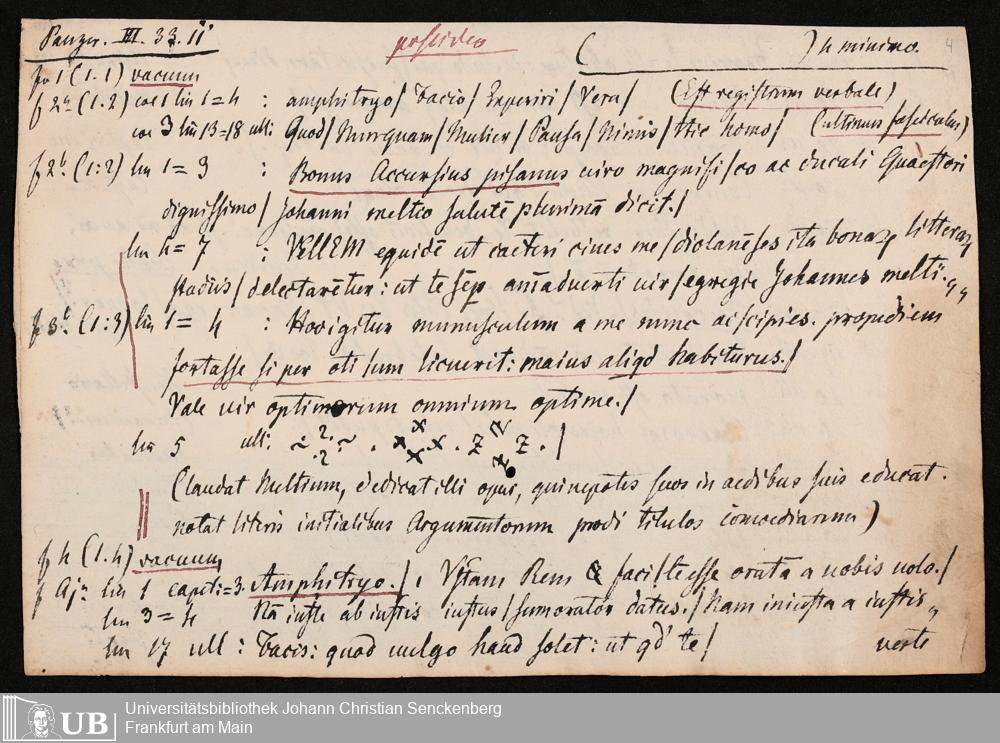 Panzer. III. 33. 11 possideo ( ) h minimo. 4
fol 1 (1.1) vacuum
f 2a (1.2) col 1 lin 1=4 : amphitryo/ Facio/ Experiri/ Vera/ (Est registrum verbale)
col 3 lin 13=18 ult: Quod/ Nunquam/ Mulier/ Pausa/ Nimis/ Hic homo/ (Culminus fasciculus)
f 2b (1:2) lin 1= 3 : Bonus Accursius pisanus uiro magnifi/co ac ducali Quaestori
dignissimo/ Johanni meltio salutē plurimā dicit./
lin 4= 7 : VEllEM equidē ut caeteri ciues me/diolanēses ita bonaꝝ litteraꝝ
studiis/ delectarētur: ut te sēp aniaduerti uir/ egregie Johannes melti,,
f 3b (1:3) lin 1= 4 : Hoc igitur munusculum a me nunc ac/cipies. propediem
fortasse si per oti/um licuerit: maius aliqd habiturus./
Vale uir optimorum omnium optime./
lin 5 ult:
(laudat Meltium, dedicat illi opus, qui nepotes suos in aedibus suis educat.
notat literis initialibus Argumentorum prodi titulos comoediarum)
f 4 (1.4) vacuum
f aja lin 1 capit:=3. Amphitryo./ . VStam Rem & faci/le esse orata a uobis uolo./
lin 3= 4 Nā iuste ab iustis iustus/ sum orator datus./ Nam iniusta a iustis,,
lin 17 ult : Facis: quod uulgo haud solet: ut qd te/ verte
UB Universitätsbibliothek Johann Christian Senckenberg
Frankfurt am Main